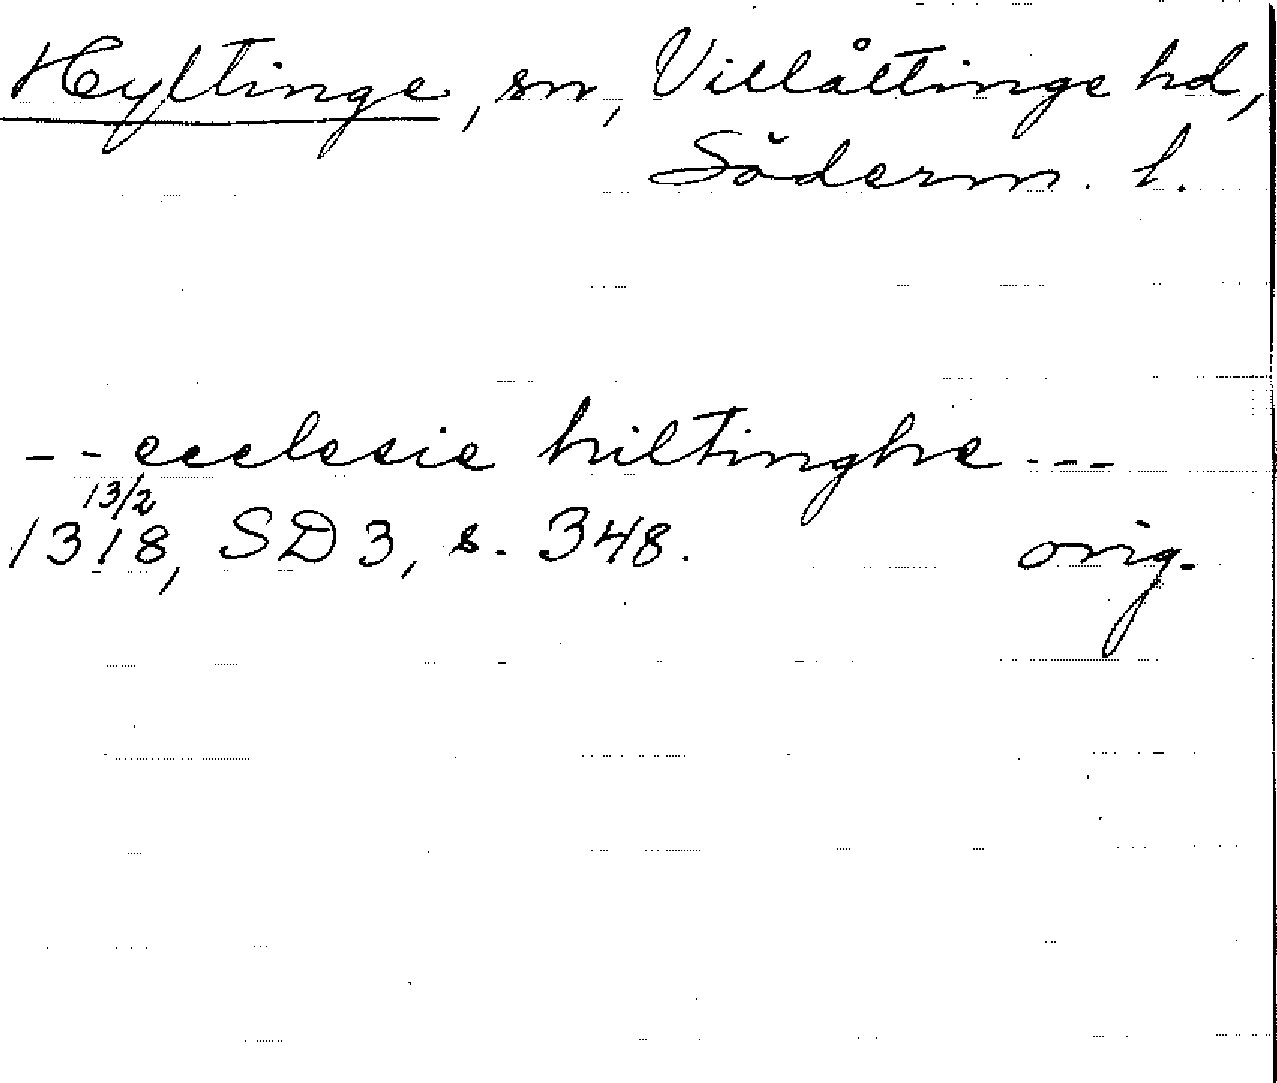 Hyltinge, sn, Villåttinge hd,
Söderm. l.
-- ecclesie hiltinghe ---
13/2
1318, SD 3, s. 348. orig.